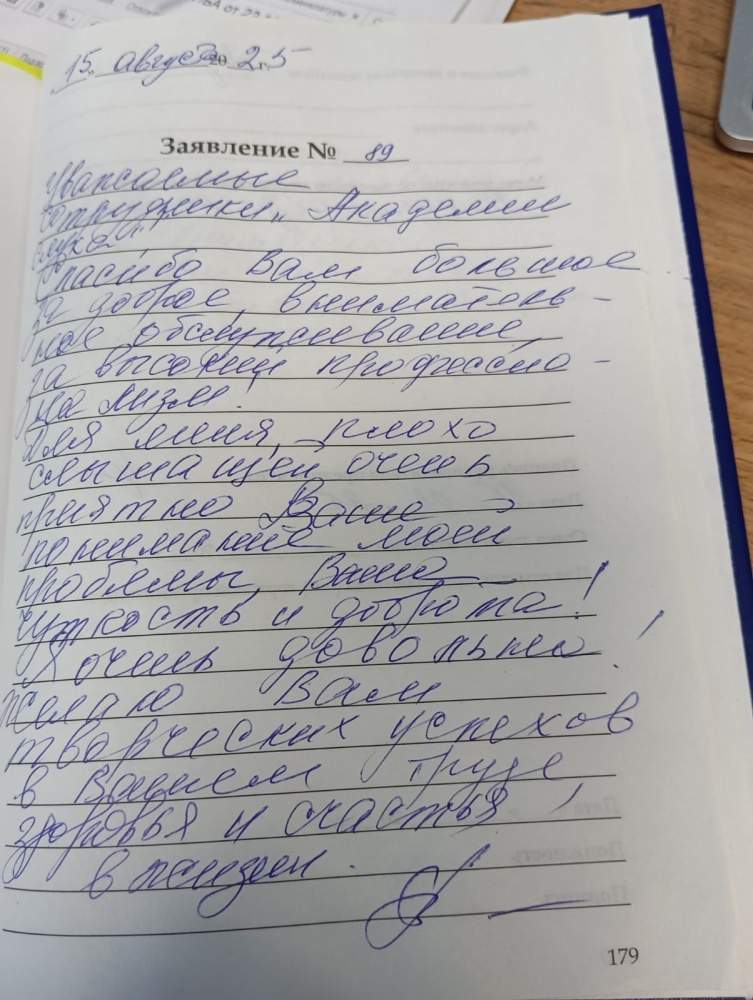 15 август 2025 г.
Заявление № 89
Уважаемые
сотрудники „Академии
слуха"!
Спасибо Вам большое
за доброе, вниматель-
ное обслуживание,
за высокий профессио-
нализм!
Для меня, плохо
слышащей очень
приятно Ваше
понимание моей
проблемы, Ваша
чуткость и доброта!
Я очень довольна!
Желаю Вам
творческих успехов
в Вашем труде,
здоровья и счастья
в жизни.
179